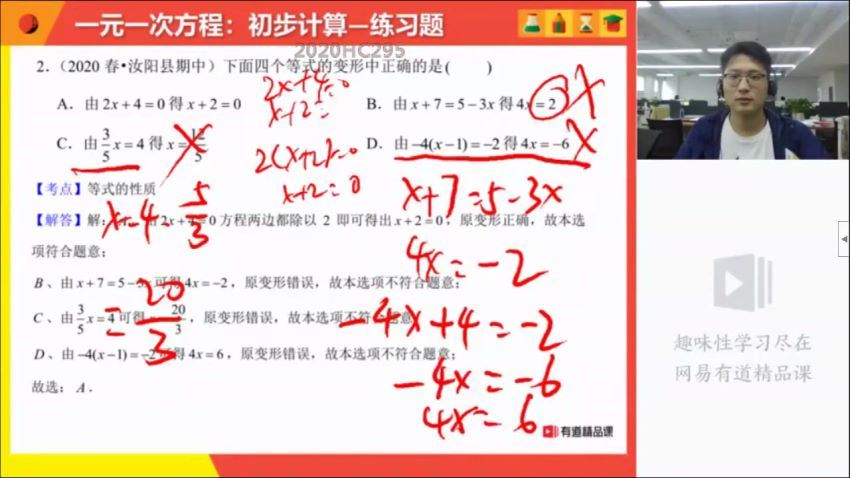 一元一次方程：初步计算—练习题
2020HC295
2.（2020 春•汝阳县期中）下面四个等式的变形中正确的是(　　)
A．由 2x+4=0 得 x+2=0
B．由 x+7=5-3x 得 4x=2
C．由 3/5 x=4 得 x=12/5
D．由 -4(x-1)=-2 得 4x=-6
2x+4=0
x+2=
2(x+2)=0
x+2=0
x+7=5-3x
4x=-2
-4x+4=-2
-4x=-6
4x=6
x=4·5/3
=20/3
【考点】等式的性质
【解答】解：2x+4=0 方程两边都除以 2 即可得出 x+2=0，原变形正确，故本选
项符合题意；
B、由 x+7=5-3x 可得 4x=-2，原变形错误，故本选项不符合题意；
C、由 3/5 x=4 可得 20/3，原变形错误，故本选项不符合题意
D、由 -4(x-1)=-2 可得 4x=6，原变形错误，故本选项不符合题意；
故选：A．
有道精品课
趣味性学习尽在
网易有道精品课